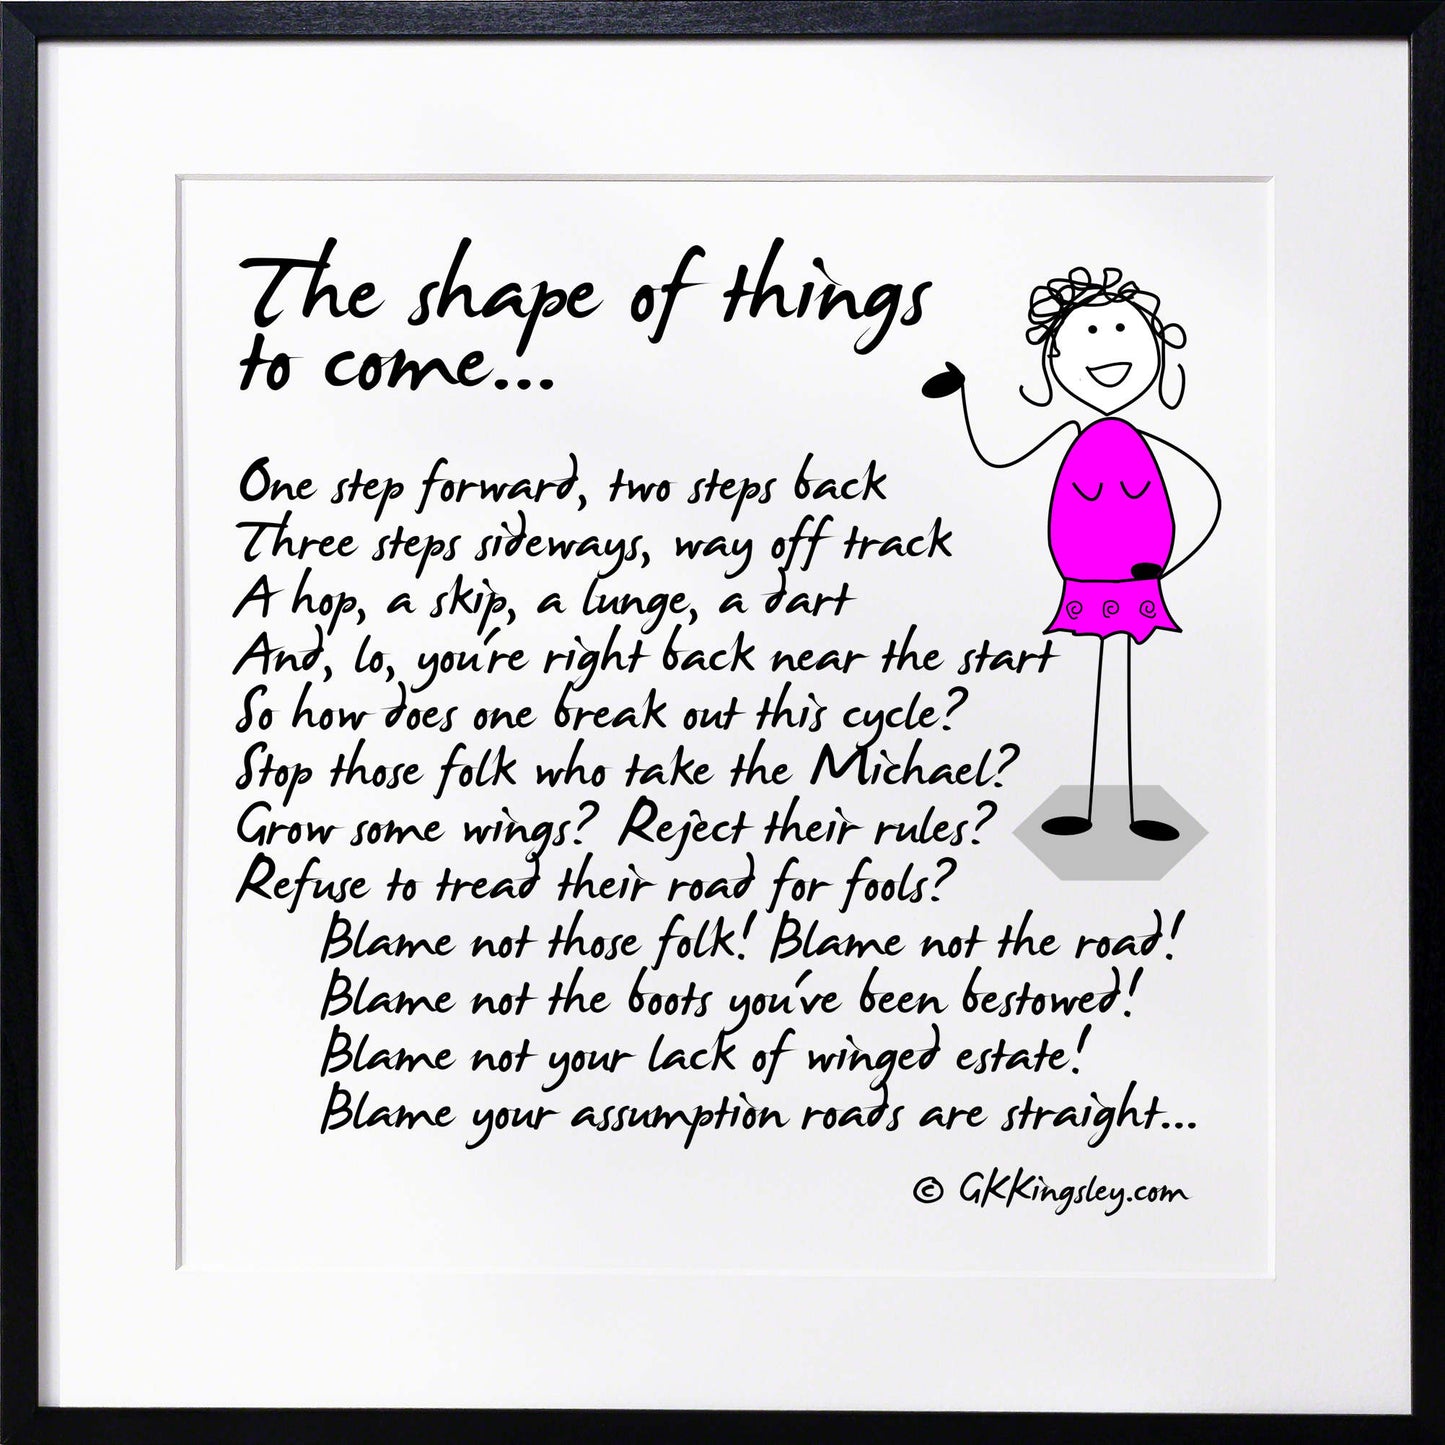 The shape of things
to come...
One step forward, two steps back
Three steps sideways, way off track
A hop, a skip, a lunge, a dart
And, lo, you're right back near the start
So how does one break out this cycle?
Stop those folk who take the Michael?
Grow some wings? Reject their rules?
Refuse to tread their road for fools?
Blame not those folk! Blame not the road!
Blame not the boots you've been bestowed!
Blame not your lack of winged estate!
Blame your assumption roads are straight...
© GKKingsley.com